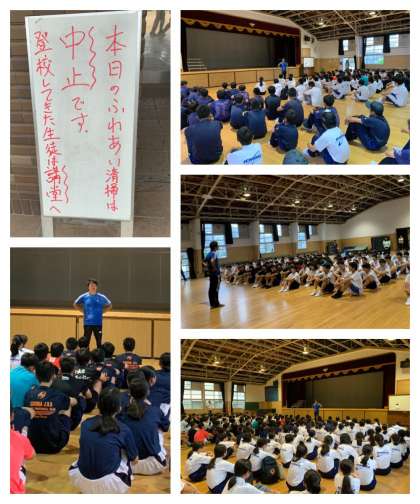 本日のふれあい清掃は
中止です。
登校してきた生徒は講堂へ